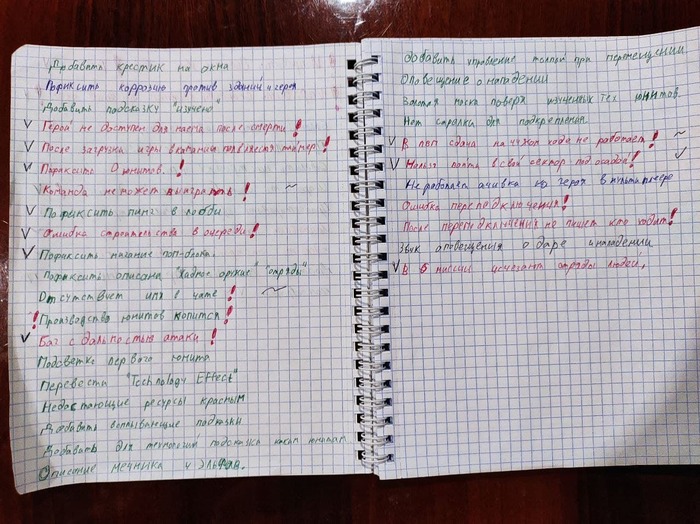 Добавить крестик на окна
Пофиксить коррозию против зданий и героя
Добавить подсказку "изучено"
Герой не доступен для найма после смерти!
После загрузки игры в кампании появляется таймер!
Пофиксить 0 юнитов.!
Команда не может выиграть!
Пофиксить пинг в лобби
Ошибка строительства в очереди!
Пофиксить название
Пофиксить описание "Хладное оружие" "отряды"
Отсутствует имя в чате!
! Производство юнитов копится!
Баг с дальностью атаки!
Подсветка первого юнита
Перевести "Technology Effect"
Недостающие ресурсы красным
Добавить всплывающие подсказки
Добавить для технологий подсказка юнитам
Описание мечника у эльфов.
Добавить управление толпой при перемещении
Оповещение о нападении
Золотая маска поверх изученных тех юнитов.
Нет стрелки для подкрепления.
В пвп сдача на чужом ходе не работает!
Нельзя пойти в свой сектор под осадой!
Не работает ачивка на героя в мультиплеере
Ошибка переподключения!
После переподключения не пишет кто ходит!
Звук оповещения о даре и нападении
В 6 миссии исчезают отряды людей,